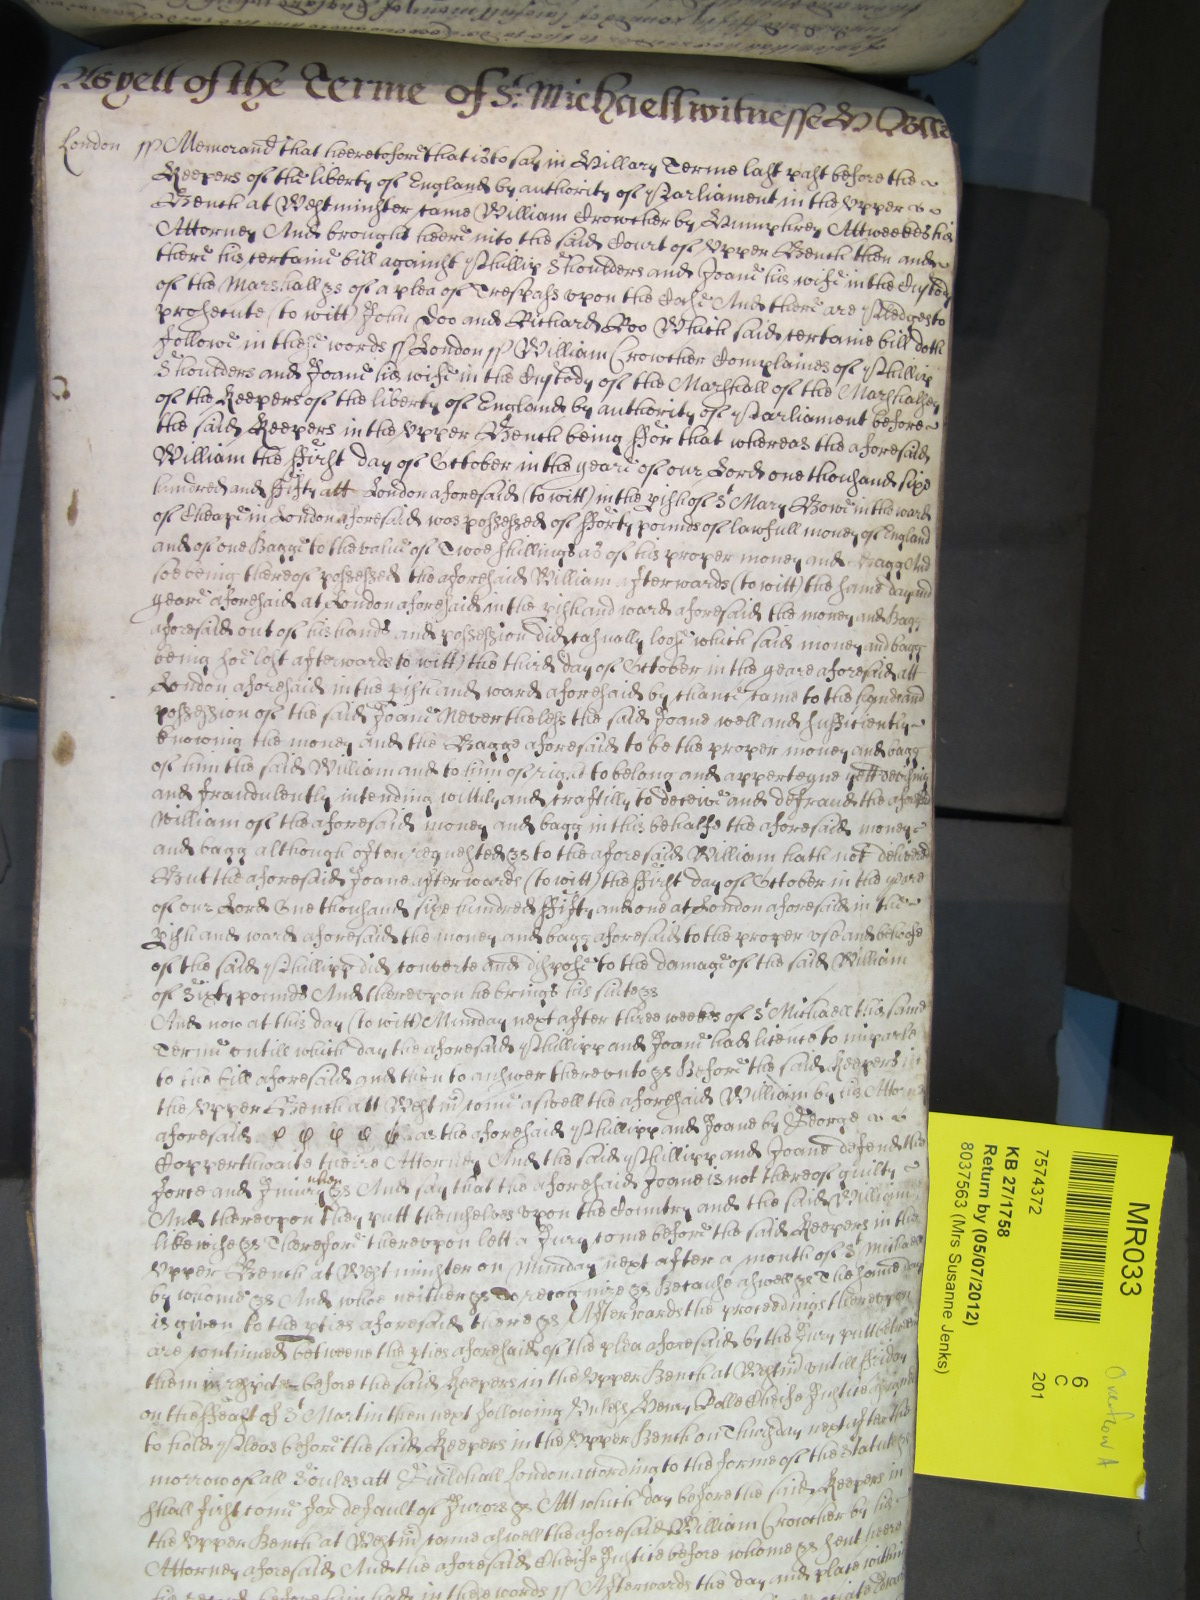 As yett of the Terme of St. Michaell witnesse H Rolle
London ss Memorand that heeretofore that is to say in Hillary Terme last past before the
Keepers of the liberty of England by authority of Parliament in the Upper
Bench at Westminster came William Crowther by Humphrey Attweekes his
Attorney And brought heere into the said Court of Upper Bench then and
there his certaine bill against Phillip Shoulders and Joane his wife in the Custody
of the Marshall &c of a plea of Trespass upon the Case And there are Pledges to
prosecute (to witt) John Doo and Richard Roo Which said certaine bill doth
followe in these words ss London ss William Crowther Complaines of Phillip
Shoulders and Joane his wife in the Custody of the Marshall of the Marshalsey
of the Keepers of the liberty of England by authority of Parliament before
the said Keepers in the Upper Bench being ffor that whereas the aforesaid
William the ffirst day of October in the yeare of our Lord one thousand sixe
hundred and ffifty att London aforesaid (to witt) in the pish of St Mary Bowe in the ward
of Cheape in London aforesaid was possessed of fforty pounds of lawfull money of England
and of one Bagge to the value of Twoe shillings as of his proper money and Bagg And
soe being thereof possessed the aforesaid William afterwards (to witt) the same day and
yeare aforesaid at London aforesaid in the pish and ward aforesaid the money and Bagg
aforesaid out of his hands and possession did casually loose which said money and bagg
being soe lost afterwards (to witt) the third day of October in the yeare aforesaid att
London aforesaid in the pish and ward aforesaid by chance came to the hands and
possession of the said Joane Neverthelesse the said Joane well and sufficiently
knowing the money and the Bagge aforesaid to be the proper money and bagg
of him the said William and to him of right to belong and apperteyne yett devising
and fraudulently intending wittily and craftily to deceive and defraud the aforesaid
William of the aforesaid money and bagg in this behalfe the aforesaid money
and bagg although often requested &c to the aforesaid William hath not delivered
But the aforesaid Joane afterwards (to witt) the ffirst day of October in the yeare
of our Lord One thousand sixe hundred ffifty and one at London aforesaid in the
Pish and ward aforesaid the money and bagg aforesaid to the proper use and behoofe
of the said Phillipp did converte and dispose to the damage of the said William
of Sixty pounds And thereupon he brings his suite &c
And now at this day (to witt) Munday next after three weekes of St Michaell this same
Terme untill which day the aforesaid Phillipp and Joane had licence to imparle
to the bill aforesaid and then to answer thereunto &c Before the said Keepers in
the Upper Bench att Westm come aswell the aforesaid William by his Attorney
aforesaid as the aforesaid Phillipp and Joane by George
Copperthwaite theire Attorney And the said Phillipp and Joane defend the
force and Iniury when &c And say that the aforesaid Joane is not thereof guilty
And thereupon they putt themselves upon the Country and the said William
likewise &c Therefore thereupon lett a Jury come before the said Keepers in the
Upper Bench at Westminster on Munday next after a month of St Michaell
by whome &c And whoe neither &c To recognize &c Because aswell &c The same day
is given to the pties aforesaid there &c Afterwards the proceedings thereupon
are continued betweene the pties aforesaid of the plea aforesaid by the Jury putt betweene
them in respite before the said Keepers in the Upper Bench at Westm untill Friday
on the ffeast of St Martin then next following Unless Henry Rolle Cheife Justice
to hold Pleas before the said Keepers in the Upper Bench on Thursday next after the
morrow of all Soules att Guildhall London according to the forme of the statute &c
shall first come for default of Jurors &c Att which day before the said Keepers in
the Upper Bench at Westm come aswell the aforesaid William Crowther by his
Attorney aforesaid And the aforesaid Cheife Justice before whome &c sent heere
his record before him had in these words ss Afterwards the day and place within
MR033
7574372
6
C
201
KB 27/1758
Return by (05/07/2012)
8037563 (Mrs Susanne Jenks)
Overflow A